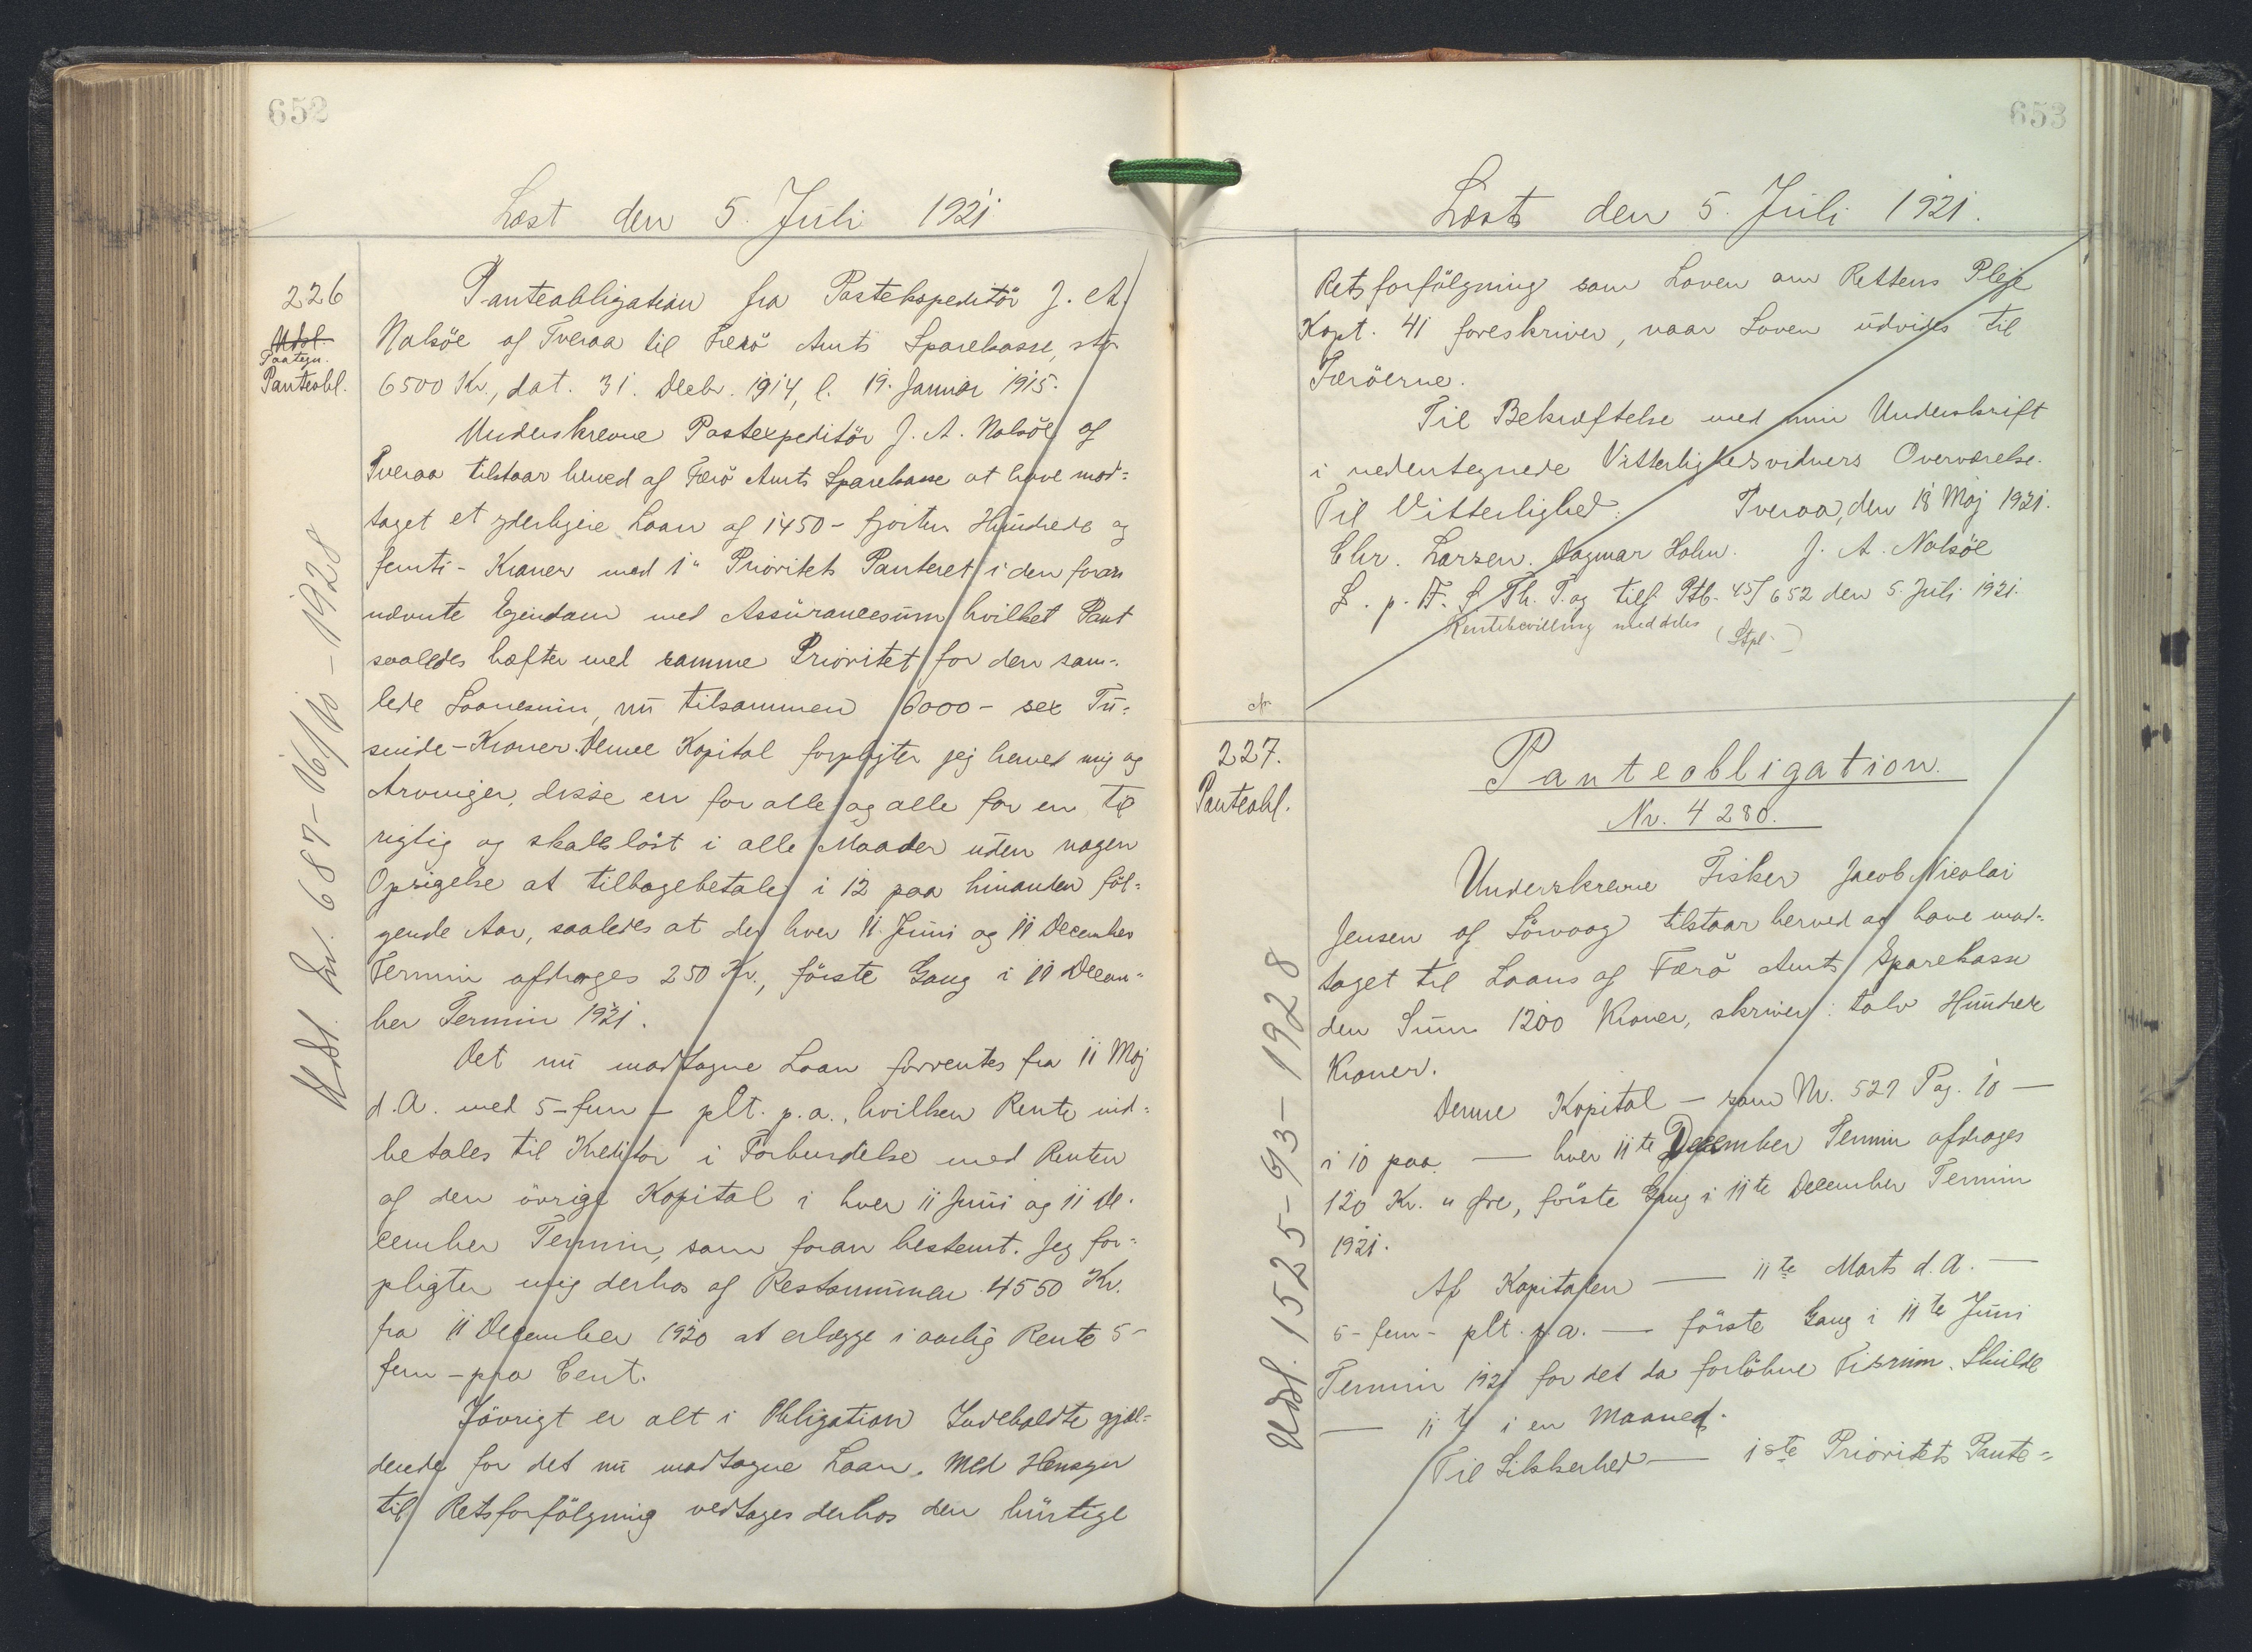 652
Læst den 5. Juli 1921
226
Udsl.
Paategn.
Panteobl.
Panteobligation fra Postekspeditör J. A.
Nolsöe af Tveraa til Færö Amts Sparekasse, stor
6500 Kr., dat. 31. Decbr. 1914, l. 19. Januar 1915.
Underskrevne Postexpeditör J. A. Nolsöe af
Tveraa tilstaar herved af Færö Amts Sparekasse at have mod-
taget et yderligere Laan af 1450 - fjorten Hundrede og
femti - Kroner med 1" Prioritets Panteret i den foran
nævnte Ejendom med Assurancesum hvilket Pant
saaledes hæfter med samme Prioritet for den sam-
lede Laanesum, nu tilsammen 6000 - sex Tu-
sinde - Kroner. Denne Kapital forpligter jeg herved mig og
Arvinger, disse en for alle og alle for en, til
rigtig og skadeslöst i alle Maader uden nogen
Opsigelse at tilbagebetale i 12 paa hinanden föl-
gende Aar, saaledes at der hver 11. Juni og 11 December
Termin afdrages 250 Kr., förste Gang i 11 Decem-
ber Termin 1921.
Det nu modtagne Laan forrentes fra 11 Maj
d.A. med 5 - fem - pCt. p.a., hvilken Rente ind-
betales til Kreditor i Forbindelse med Renten
af den övrige Kapital i hver 11 Juni og 11 De-
cember Termin, som foran bestemt. Jeg for-
pligter mig derhos af Restsummen 4550 Kr.
fra 11 December 1920 at erlægge i aarlig Rente 5 -
fem - pro Cent.
Jövrigt er alt i Obligation Indeholdte gjæl-
dende for det nu modtagne Laan. Med Hensyn
til Retsforfölgning vedtages derhos den hurtige
Udsl. Lv. 687 - 16/10 - 1928
653
Læst den 5. Juli 1921.
Retsforfölgning som Loven om Rettens Pleje
Kapt. 41 foreskriver, naar Loven udvides til
Færöerne.
Til Bekræftelse med min Underskrift
i nedentegnede Vitterlighedsvidners Overværelse.
Til Vitterlighed: Tveraa, den 18 Maj 1921.
Chr. Larsen. Dagmar Holm. J. A. Nolsöe
L. p. F. S. Th. T. og tilf. Ptb. 45/652 den 5. Juli 1921.
Rentebevilling meddeles (Stpl. -)
227.
Panteobl.
Panteobligation.
Nr. 4280.
Underskrevne Fisker Jacob Nicolai
Jensen af Sörvaag tilstaar herved at have mod-
taget til Laans af Færö Amts Sparekasse
den Sum 1200 Kroner, skriver: tolv Hundrede
Kroner.
Denne Kapital — som Nr. 527 Pag. 10 —
i 10 paa — hver 11te December Termin afdrages
120 Kr. " Öre, förste Gang i 11te December Termin
1921.
Af Kapitalen — 11te Marts d.A. —
5 - fem - pCt. p.a. — förste Gang i 11te Juni
Termin 1921 for det da forlöbne Tidsrum. Skulde
— 11te i en Maaned.
Til Sikkerhed — 1ste Prioritets Pante-
Udsl. 1525 - 5/3 - 1928